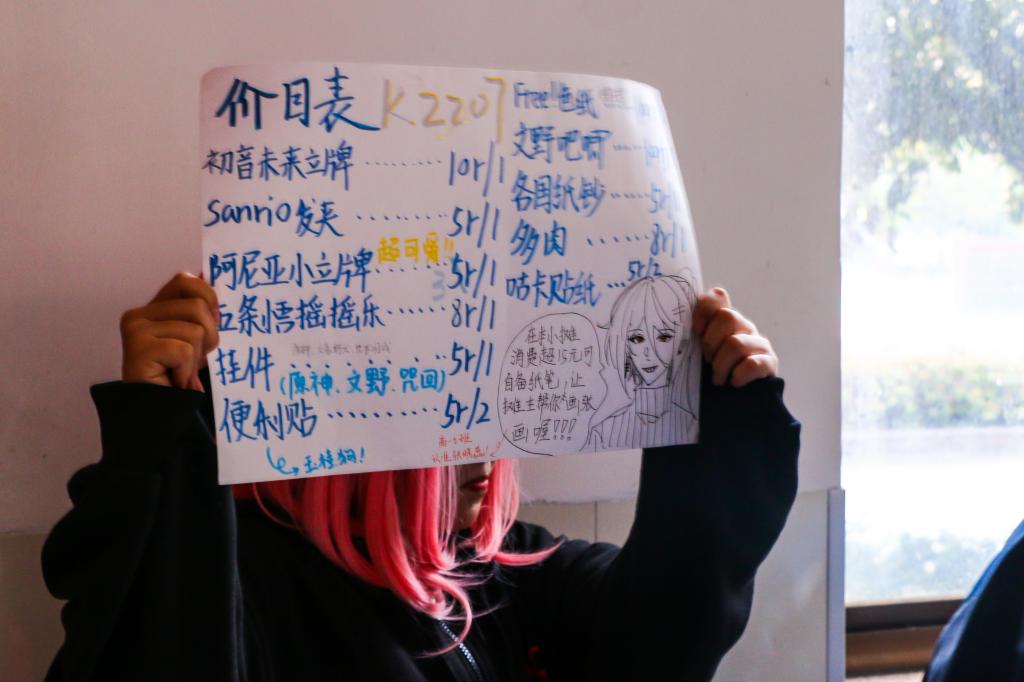 价目表 K2207
初音未来立牌 ········ 10r/1
sanrio发夹 ········ 5r/1
超可爱!!
阿尼亚小立牌 ······ 5r/1
3
五条悟摇摇乐 8r/1
挂件 5r/1
(原神、文野、咒回)
便利贴 ·········· 5r/2
玉桂狗!
Free!色纸
文野吧唧 ····· 10r/1
各国纸钞 ····· 5r/1
多肉 ······ 8r/1
咕卡贴纸 5r/2
在本小摊
消费超15元可
自备纸笔,让
摊主帮你画张
画喔!!!